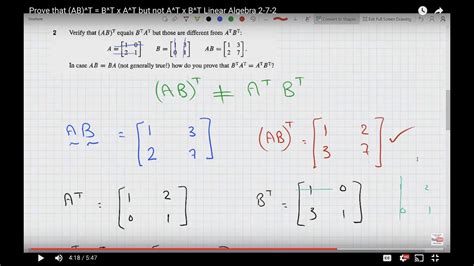 Prove that (AB)^T = B^T x A^T but not A^T x B^T Linear Algebra 2-7-2
2 Verify that (AB)ᵀ equals BᵀAᵀ but those are different from AᵀBᵀ:
A = [1 0
2 1] B = [1 3
0 1] AB = [1 3
2 7].
In case AB = BA (not generally true!) how do you prove that BᵀAᵀ = AᵀBᵀ?
(AB)ᵀ ≠ Aᵀ Bᵀ
AB = [1 3
2 7] (AB)ᵀ = [1 2
3 7] ✓
Aᵀ = [1 2
0 1] Bᵀ = [1 0
3 1] 2
0 1
4:18 / 5:47